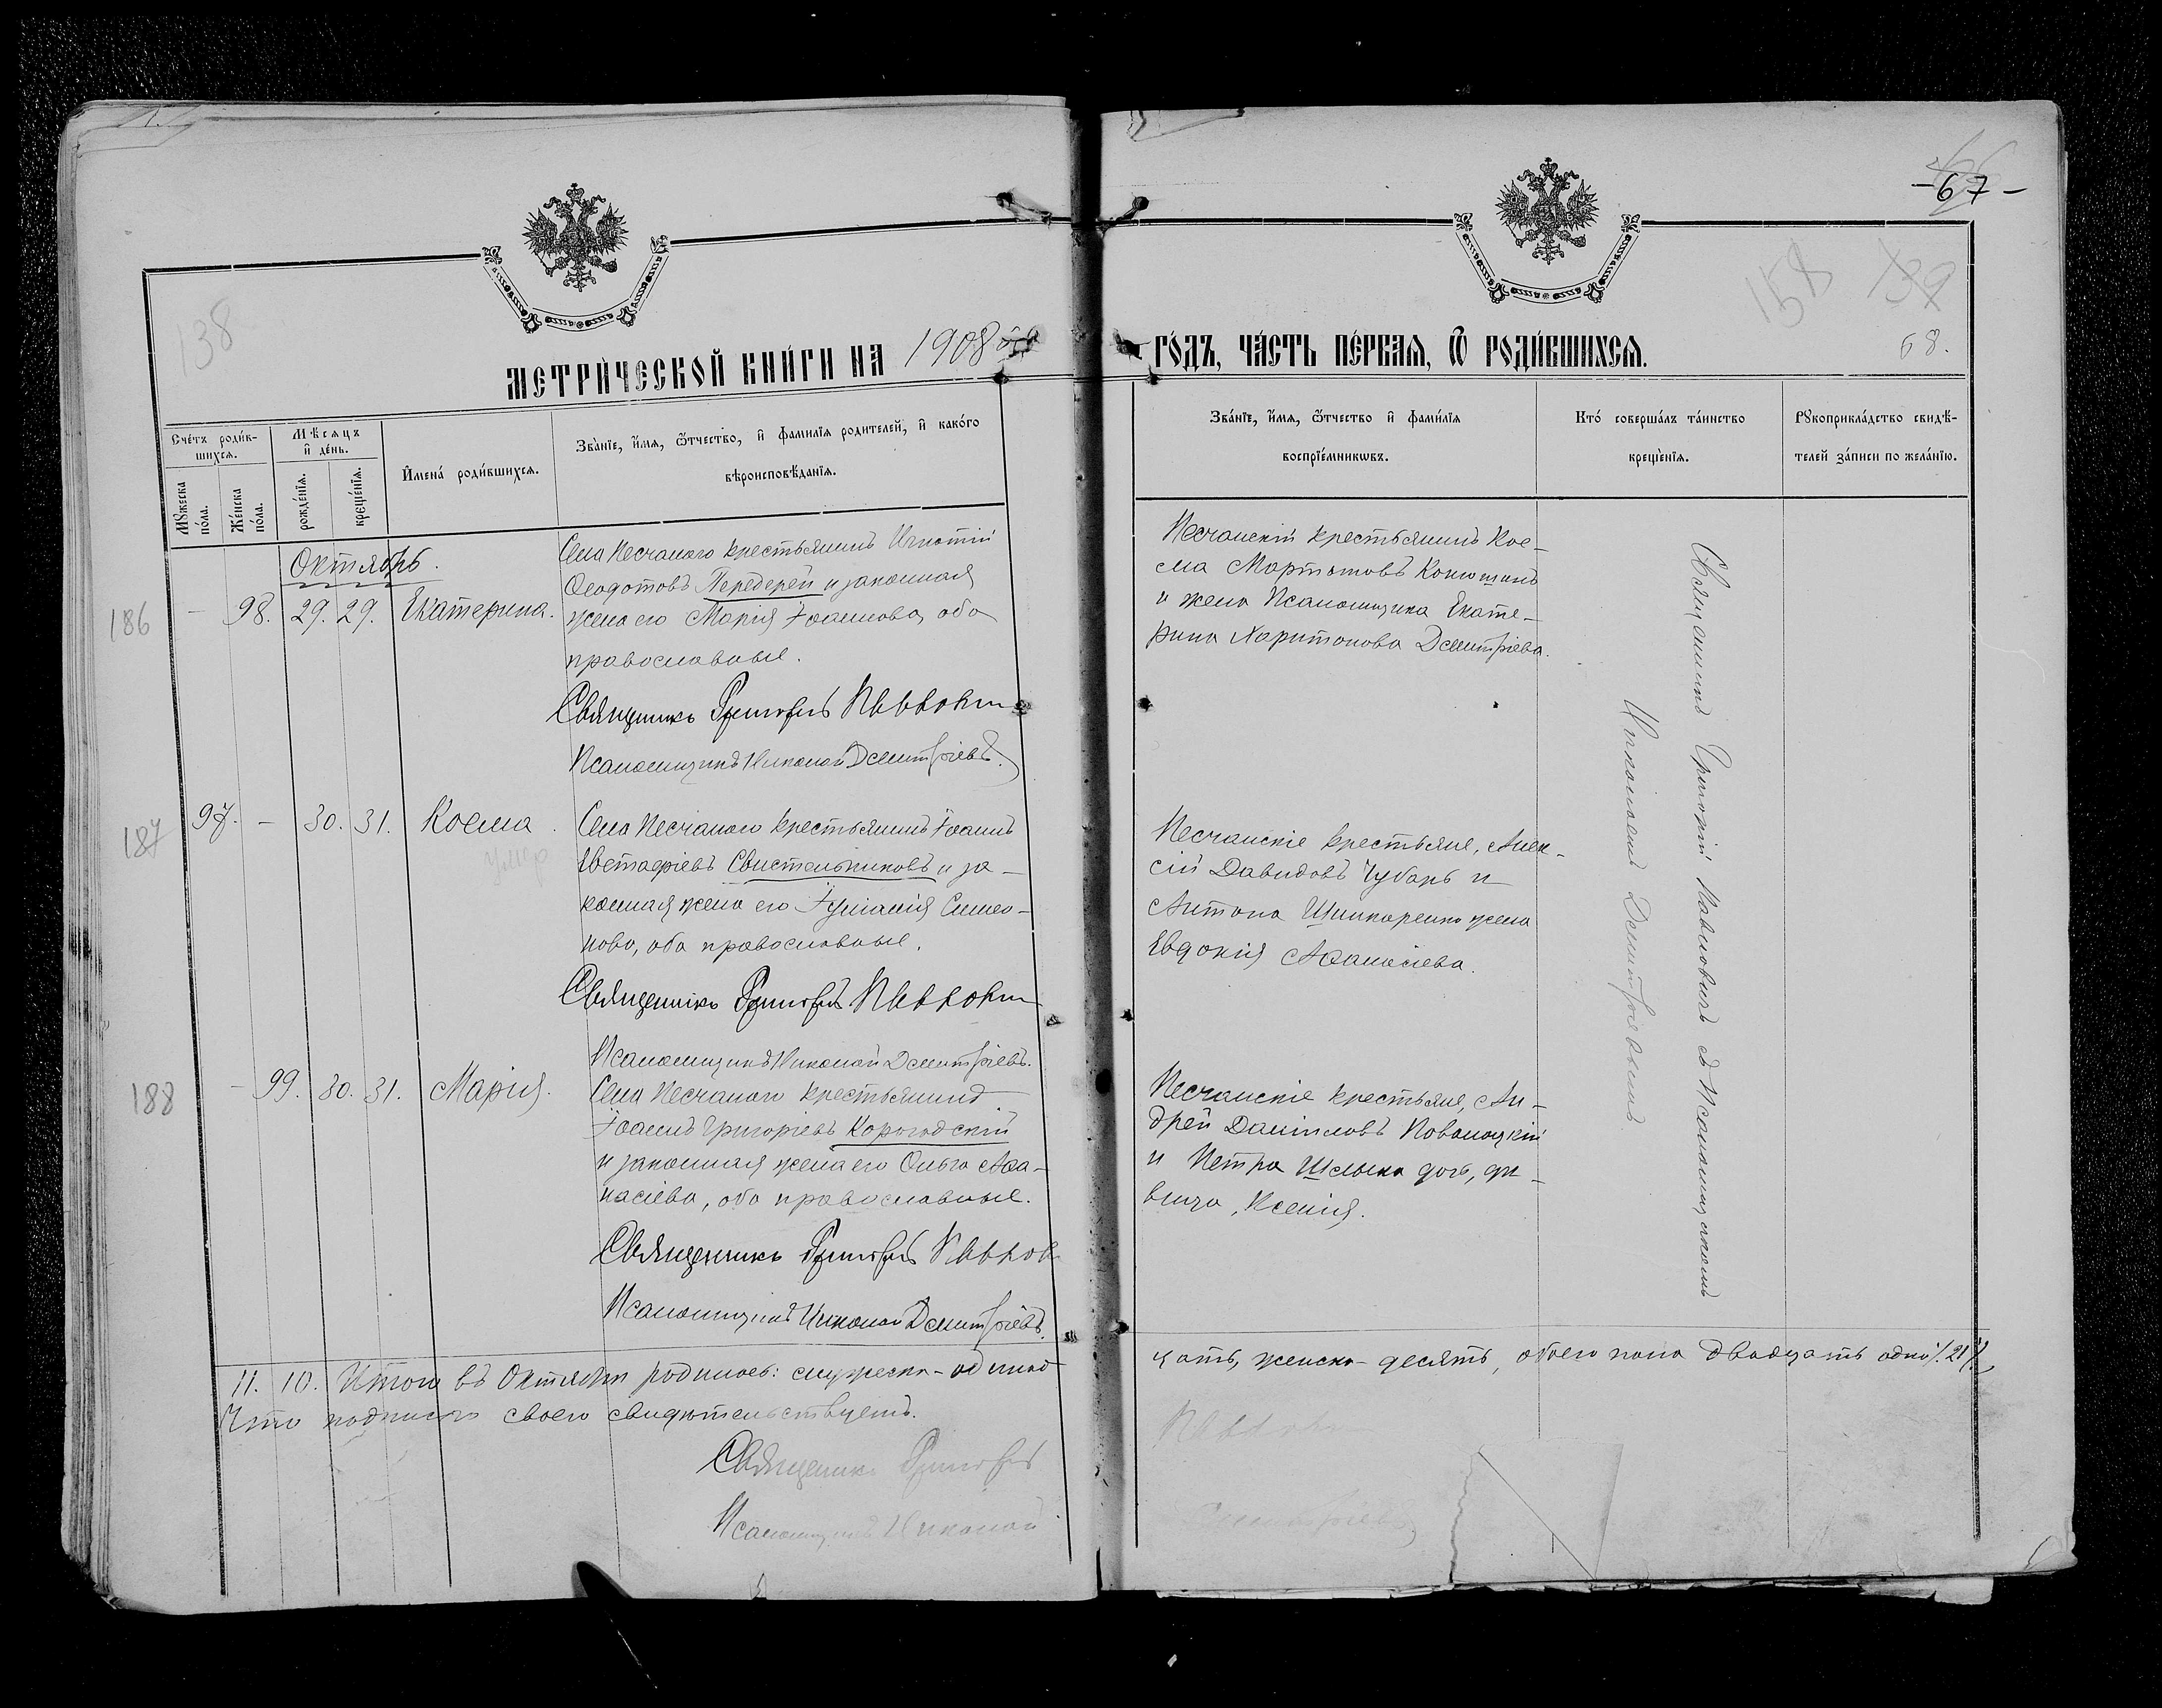 -67-
138
158
139
68.
МЕТРИЧЕСКОЙ КНИГИ НА 1908 ой
ГОДЪ, ЧАСТЬ ПЕРВАЯ, Ѿ РОДИВШИХСЯ.
Счетъ родив-
шихся.
Мужеска
пола.
Женска
пола.
Мѣсяцъ
и день.
рожденія.
крещенія.
Имена родившихся.
Званіе, имя, ѿтчество, и фамилія родителей, и какого
вѣроисповѣданія.
Званіе, имя, ѿтчество и фамилія
воспріемниковъ.
Кто совершалъ таинство
крещенія.
Рукоприкладство свидѣ-
телей записи по желанію.
Октябрь.
186
— 98. 29. 29. Екатерина.
Села Песчаного крестьянинъ Игнатій
Ѳеодотовъ Передерей и законная
жена его Марія Іоаннова, оба
православные.
Священникъ Григорій Павлович
Псаломщикъ Николай Дмитріевъ.
Песчанскій крестьянинъ Кос-
ма Мартыновъ Коношинъ
и жена Псаломщика Екате-
рина Харитонова Дмитріева.
Священникъ Григорій Павловичъ съ Псаломщикомъ
Николаемъ Дмитріевымъ
187
97. — 30. 31. Косма.
умер
Села Песчаного крестьянинъ Іоаннъ
Евстафіевъ Свистельниковъ и за-
конная жена его Іуліанія Симео-
нова, оба православные.
Священникъ Григорій Павлович
Псаломщикъ Николай Дмитріевъ.
Песчанскіе крестьяне, Алек-
сій Давидовъ Чубарь и
Антона Шинкаренка жена
Евдокія Аѳанасіева.
188
— 99. 30. 31. Марія.
Села Песчаного крестьянинъ
Іоаннъ Григоріевъ Корогодскій
и законная жена его Ольга Аѳа-
насіева, оба православные.
Священникъ Григорій Павлов
Псаломщикъ Николай Дмитріевъ.
Песчанскіе крестьяне, Ан-
дрей Даніиловъ Поволоцкій
и Петра Шлыка дочь, дѣ-
вица, Ксенія.
11. 10. Итого въ Октябрѣ родилось: мужеска - одинад-
цать, женска - десять, обоего пола двадцать одно /. 21 /.
Что подписомъ своего свидѣтельствуемъ.
Священникъ Григорій
Павлович
Псаломщикъ Николай
Дмитріевъ